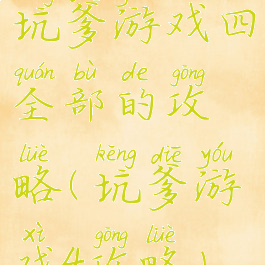 坑爹游戏四
quán bù de gōng
全部的攻
lüè kēng diē yóu
略(坑爹游
xì gōng lüè
戏4攻略)